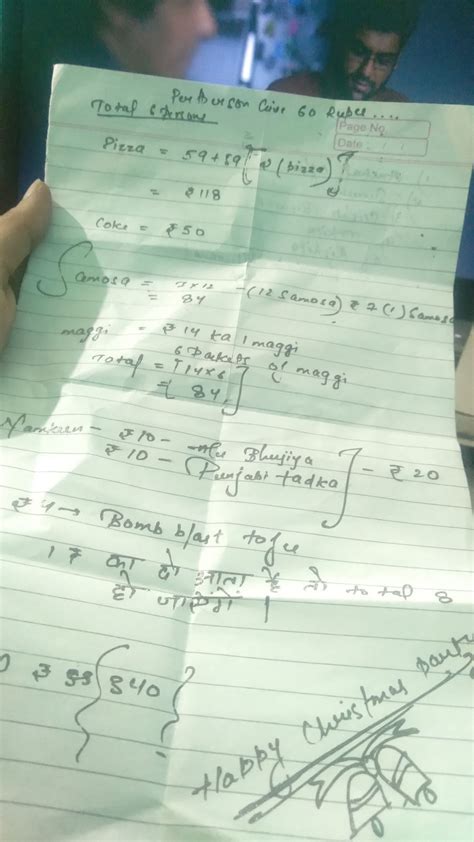 Per Person Give 60 Rupee....
Total 6 Persons
Page No.
Date : / /
Pizza = 59+59 [2 (pizza)]
= ₹118
Coke = ₹50
Samosa = 7x12 - (12 Samosa) ₹ 7 (1) Samosa
= 84
maggi = ₹ 14 ka 1 maggi
6 Packets of maggi
Total = 14x6
= 84
Namkeen - ₹10 - Alu Bhujiya
₹10 - Punjabi tadka - ₹20
₹4 → Bomb blast
1 ₹ का दो आता है तो total 8
हो जायेंगे।
340
Happy Christmas Party